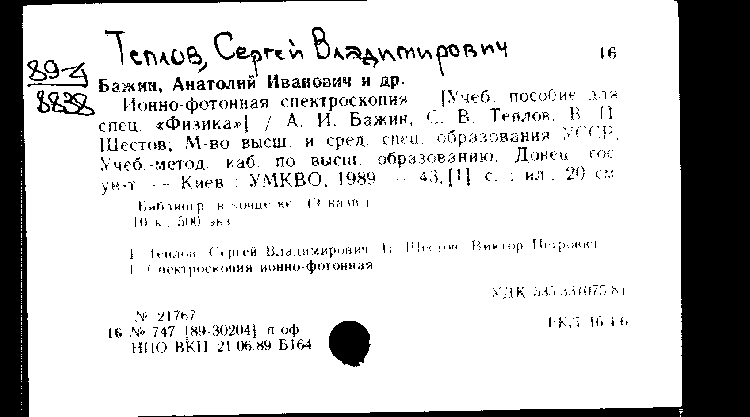 Теплов, Сергей Владимирович
16
89-4
8838
Бажин, Анатолий Иванович и др.
Ионно-фотонная спектроскопия [Учеб. пособие для
спец. «Физика»] / А. И. Бажин, С. В. Теплов, В. П.
Шестов; М-во высш. и сред. спец. образования УССР,
Учеб.-метод. каб. по высш. образованию, Донец. гос
ун-т. — Киев : УМКВО, 1989 — 43,[1] с. : ил. ; 20 см
Библиогр. в конце кн.
10 к. 500 экз.
I. Теплов, Сергей Владимирович. II. Шестов, Виктор Петрович
1. Спектроскопия ионно-фотонная
УДК
№ 21767
16 № 747 [89-30204] п оф
НПО ВКП 21.06.89 Б164